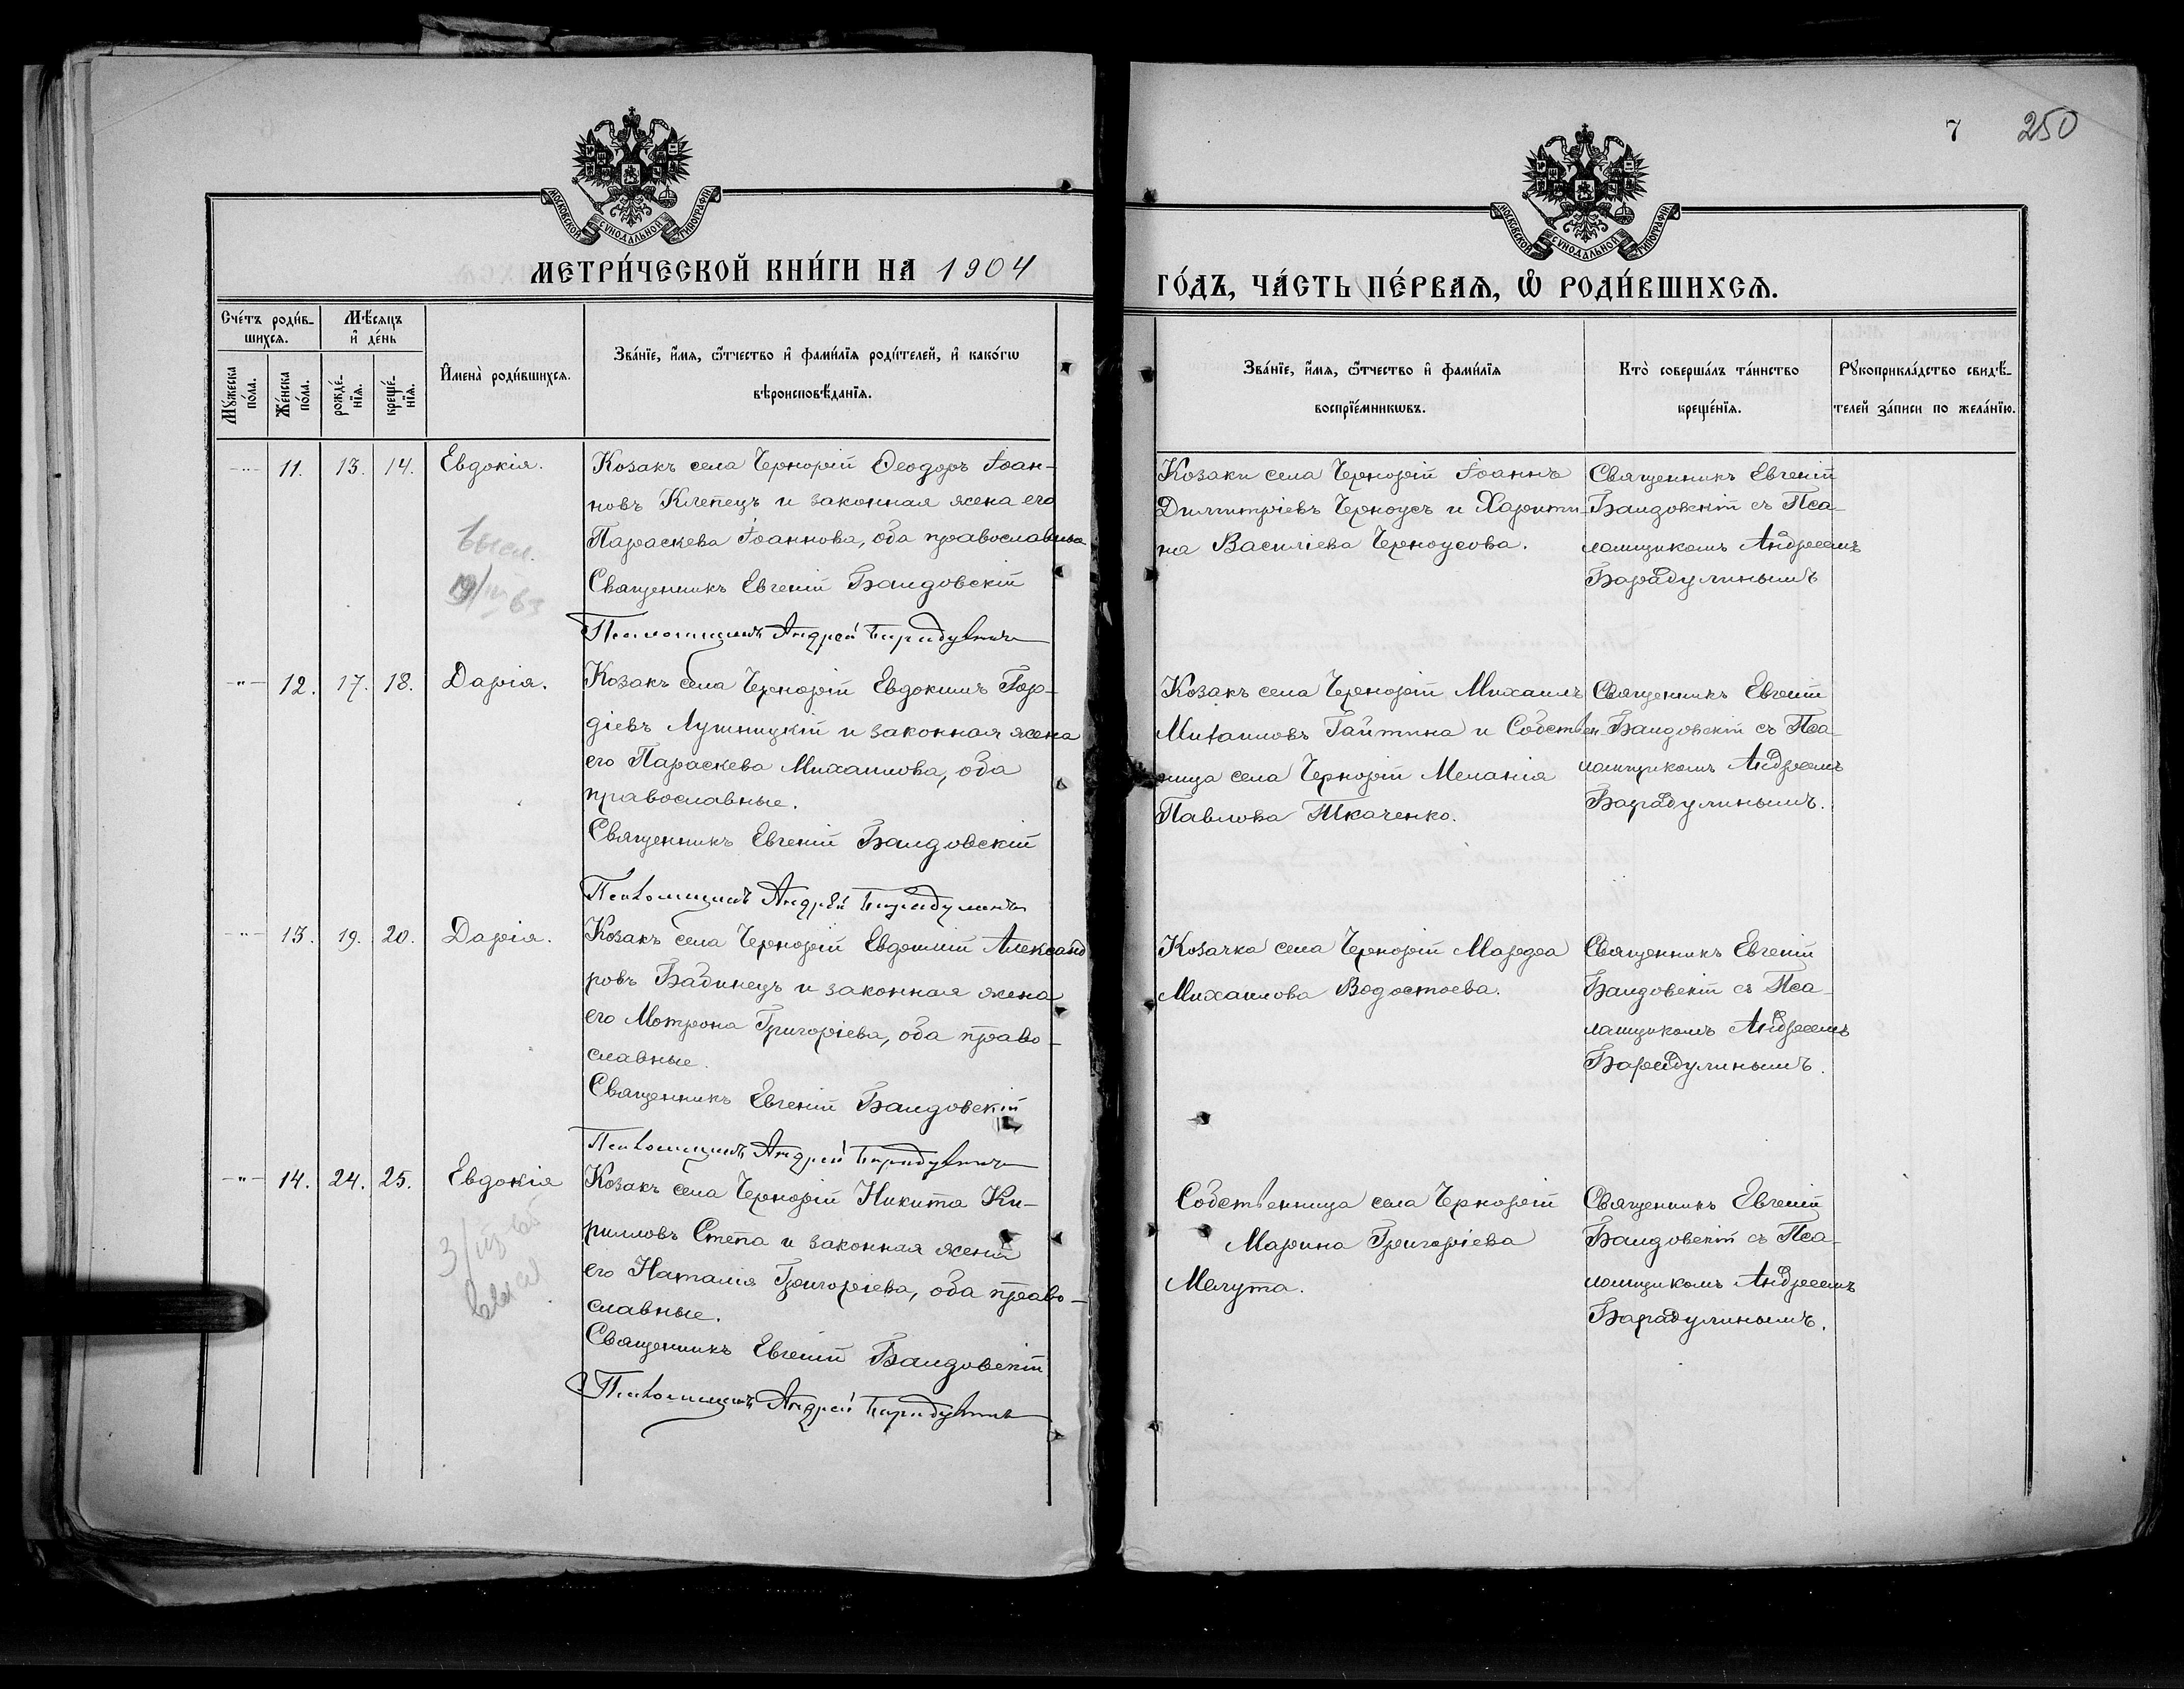 7 250
МОСКОВСКОЙ СУНОДАЛЬНОЙ ТИПОГРАФІИ
МОСКОВСКОЙ СУНОДАЛЬНОЙ ТИПОГРАФІИ
МЕТРИ́ЧЕСКОЙ КНИ́ГИ НА 1904
ГО́ДЪ, ЧА́СТЬ ПЕ́РВАѦ, Ѡ РОДИ́ВШИХСѦ.
Сче́тъ роди́в-
шихсѧ.
Мꙋ́жеска по́ла.
Же́нска по́ла.
Мѣ́сѧцъ
и҆ де́нь
рожде́-
нїѧ.
креще́-
нїѧ.
И҆мена̀ роди́вшихсѧ.
Зва́нїе, и҆́мѧ, ѻ҆́тчество и҆ фами́лїѧ роди́телей, и҆ како́гѡ
вѣроисповѣ́данїѧ.
Зва́нїе, и҆́мѧ, ѻ҆́тчество и҆ фами́лїѧ
воспрїе́мникѡвъ.
Кто̀ соверша́лъ та́инство
креще́нїѧ.
Рꙋкоприкла́дство свидѣ́-
телей за́писи по жела́нїю.
-"- 11. 13. 14. Евдокія.
Козакъ села Чернорій Ѳеодоръ Іоан-
новъ Клепецъ и законная жена его
Параскева Іоаннова, оба православные
Священникъ Евгеній Баидовскій
Псаломщикъ Андрей Барадулинъ
Козаки села Чернорій Іоаннъ
Димитріевъ Черноусъ и Харити-
на Василіева Черноусова.
Священникъ Евгеній
Баидовскій съ Пса-
ломщикомъ Андреемъ
Барадулинымъ
высл.
19/
-"- 12. 17. 18. Дарія.
Козакъ села Чернорій Евдокимъ Гор-
діевъ Лушницкій и законная жена
его Параскева Михаилова, оба
православные.
Священникъ Евгеній Баидовскій
Псаломщикъ Андрей Барадулинъ
Козакъ села Чернорій Михаилъ
Михаиловъ Гайтина и Собствен-
ница села Чернорій Меланія
Павлова Ткаченко.
Священникъ Евгеній
Баидовскій съ Пса-
ломщикомъ Андреемъ
Барадулинымъ.
-"- 13. 19. 20. Дарія.
Козакъ села Чернорій Александ
ровъ Бабинецъ и законная жена
его Мотрона Григоріева, оба право-
славные.
Священникъ Евгеній Баидовскій
Псаломщикъ Андрей Барадулинъ
Козачка села Чернорій Марѳа
Михаилова Водостоева.
Священникъ Евгеній
Баидовскій съ Пса-
ломщикомъ Андреемъ
Барадулинымъ.
-"- 14. 24. 25. Евдокія
Козакъ села Чернорій Никита Ки-
рилловъ Степа и законная жена
его Наталія Григоріева, оба право-
славные.
Священникъ Евгеній Баидовскій
Псаломщикъ Андрей Барадулинъ
Собственница села Чернорій
Марина Григоріева
Мелута.
Священникъ Евгеній
Баидовскій съ Пса-
ломщикомъ Андреемъ
Барадулинымъ.